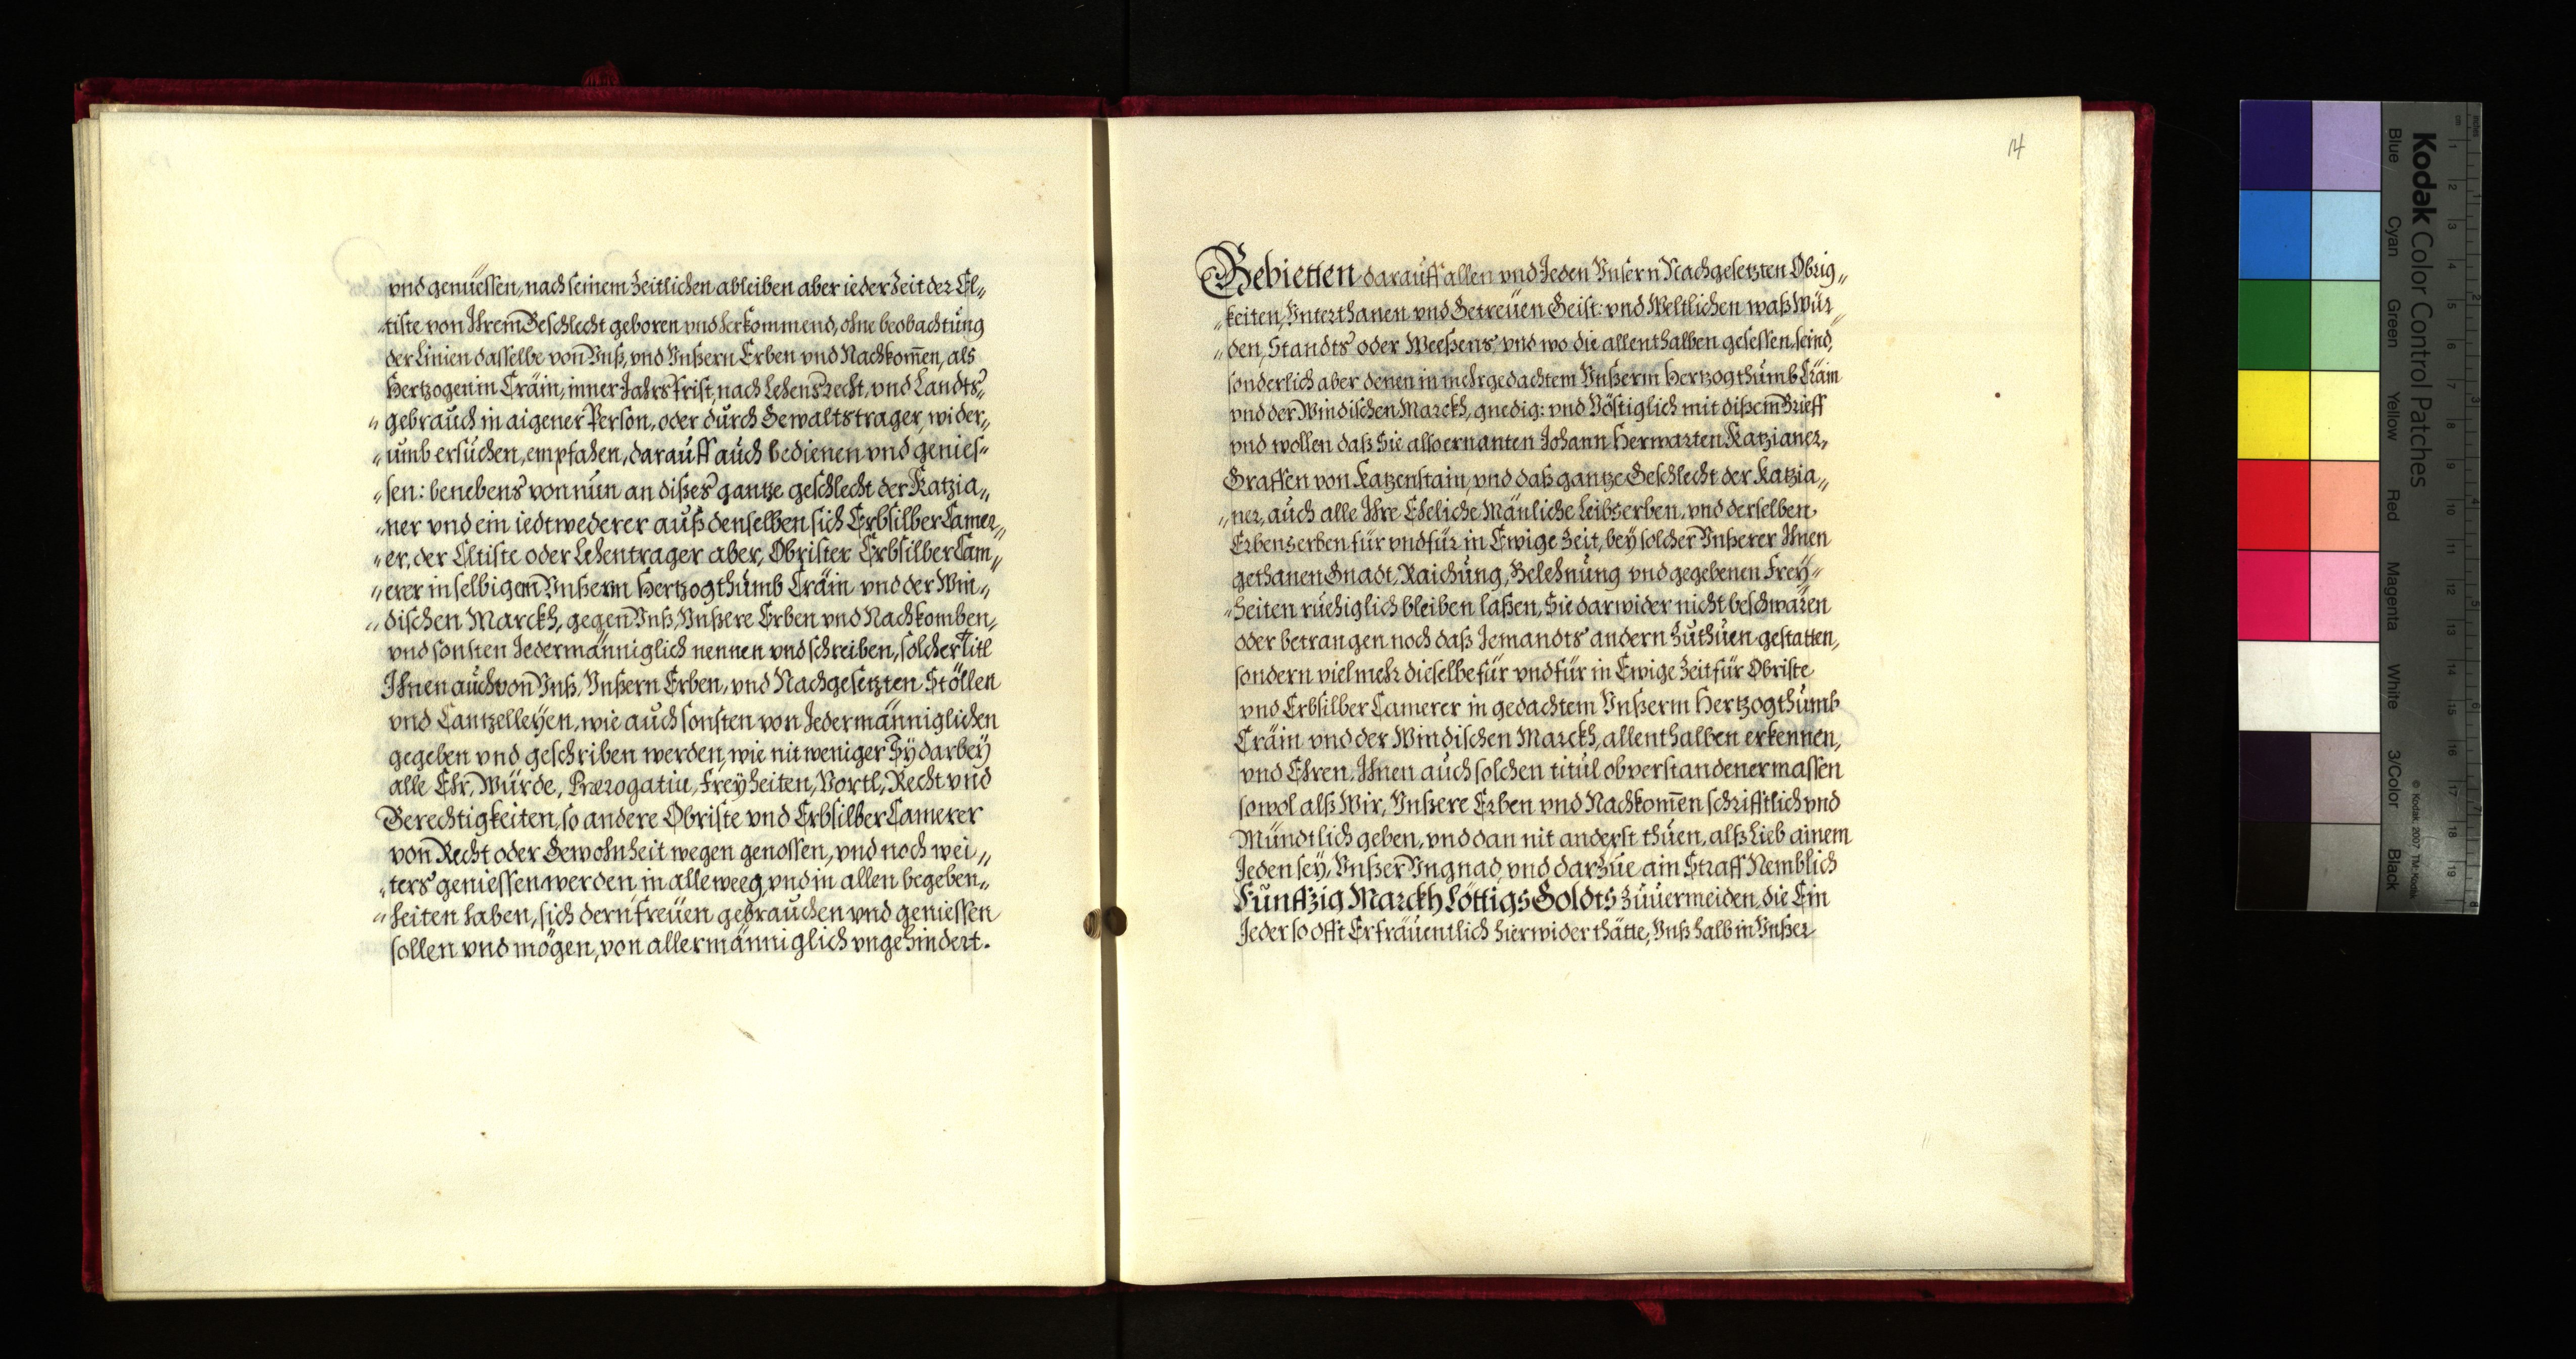 vnd genüessen, nach seinem Zeitlichen ableiben aber ieder Zeit der El„
„tiste von Ihrem Geschlecht geboren vnd herkommend, ohne beobachtüng
der Linien dasselbe von Vnß, vnd Vnßern Erben vnd Nachkom̄en, als
Hertzogen in Cräin, inner Jahrs frist, nach Lehens recht, vnd Landts„
„gebraüch in aigener Person, oder dürch Gewaltstrager, wider„
„umb ersüchen, empfahen, daraüff aüch bedienen vnd genies„
„sen: benebens von nün an dißes gantze geschlecht der Katzia„
„ner vnd ein iedtwederer aüß denselben sich Erbsilber Camer„
„er, der Eltiste oder Lehentrager aber, Obrister Erbsilber Cam„
„erer in selbigem Vnßerm Hertzogthümb Cräin vnd der Win„
„dischen Marckh, gegen Vnß, Vnßere Erben vnd Nachkomben,
vnd sonsten Jedermänniglich nennen vnd schreiben, solcher Titl
Ihnen aüch von Vnß, Vnßern Erben, vnd Nachgesetzten Stöllen
vnd Cantzelleÿen, wie aüch sonsten von Jedermänniglichen
gegeben vnd geschriben werden, wie nit weniger Sÿ darbeÿ
alle Ehr, Würde, Prærogatiu, Freÿheiten, Vortl, Recht vnd
Gerechtigkeiten, so andere Obriste vnd Erbsilber Camerer
von Recht oder Gewohnheit wegen genossen, vnd noch wei„
„ters geniessen werden, in alle weeg, vnd in allen begeben„
„heiten haben, sich dern freüen gebraüchen vnd geniessen
sollen vnd mögen, von allermänniglich vngehindert.
14
Gebietten daraüff allen vnd Jeden Vnsern Nachgesetzten Obrig„
„keiten, Vnterthanen vnd Getreüen Geist: vnd Weltlichen waß Wür„
„den, Standts oder Weeßens, vnd wo die allenthalben gesessen seind,
sonderlich aber denen in mehrgedachtem Vnßerm Hertzogthümb Cräin
vnd der Windischen Marckh, gnedig: vnd Vöstiglich mit dißem Brieff
vnd wollen daß Sie also ernanten Johann Herwarten Katzianer,
Graffen von Katzenstain, vnd daß gantze Geschlecht der Katzia„
„ner, aüch alle Ihre Eheliche Mänliche Leibs erben, vnd derselben
Erbens erben für vnd für in Ewige Zeit, beÿ solcher Vnßerer Ihnen
gethanen Gnadt, Raichüng, Belehnüng vnd gegebenen Freÿ„
„heiten rüehiglich bleiben laßen, Sie darwider nicht beschwären
oder betrangen noch daß Jemandts andern züthüen gestatten,
sondern vielmehr dieselbe für vnd für in Ewige Zeit für Obriste
vnd Erbsilber Camerer in gedachtem Vnßerm Hertzogthümb
Cräin vnd der Windischen Marckh, allenthalben erkennen,
vnd Ehren, Ihnen aüch solchen titül obverstandener massen
sowol alß Wir, Vnßere Erben vnd Nachkom̄en schrifftlich vnd
Mündtlich geben, vnd dan nit anderst thüen, alß Lieb ainem
Jeden seÿ, Vnßer Vngnad, vnd darzüe ain Straff Nemblich
Fünffzig Marckh Löttigs Goldts züuermeiden, die Ein
Jeder so offt Er fräuentlich hierwider thätte, Vnß halb in Vnßer
Kodak Color Control Patches
Blue
Cyan
Green
Yellow
Red
Magenta
White
3/Color
Black
© Kodak, 2007 TM: Kodak